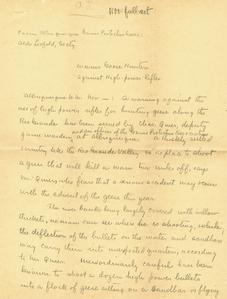 Not full set
From Albuquerque Game Protective Assn.
Aldo Leopold, Secty
Warns Goose Hunters
against High-power Rifles
Albuquerque N.M. Nov — : A warning against the
use of high power rifles for hunting geese along the
Rio Grande has been issued by Chas. Quier, deputy
game warden at Albuquerque
and an officer of the Game Protective Association
. A thickly settled
country like the Rio Grande Valley is no place to shoot
a gun that will kill a man two miles off, says
Mr. Quier, who fears that a serious accident may occur
with the advent of the geese this year.
The river banks being largely covered with willow
thicket, no man can see where he is shooting, while
the deflection of the bullets on the water and sandbars
may carry them into unexpected quarters, according
to Mr. Quier. Men ordinarily careful have been
known to shoot a dozen high power bullets
into a flock of geese sitting on a sandbar or flying